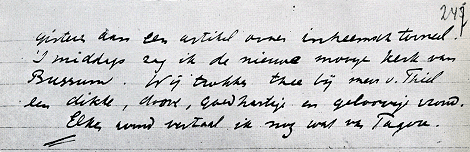 247
gisteren aan een artikel over inheemsch tooneel.
's middags zag ik de nieuwe kerk van
Bussum. Wij trokken thee bij mevr. v. Thiel
een dikke, doove, goedhartige en geloovige vrouw.
Elken avond vertaal ik nog wat van Tagore.